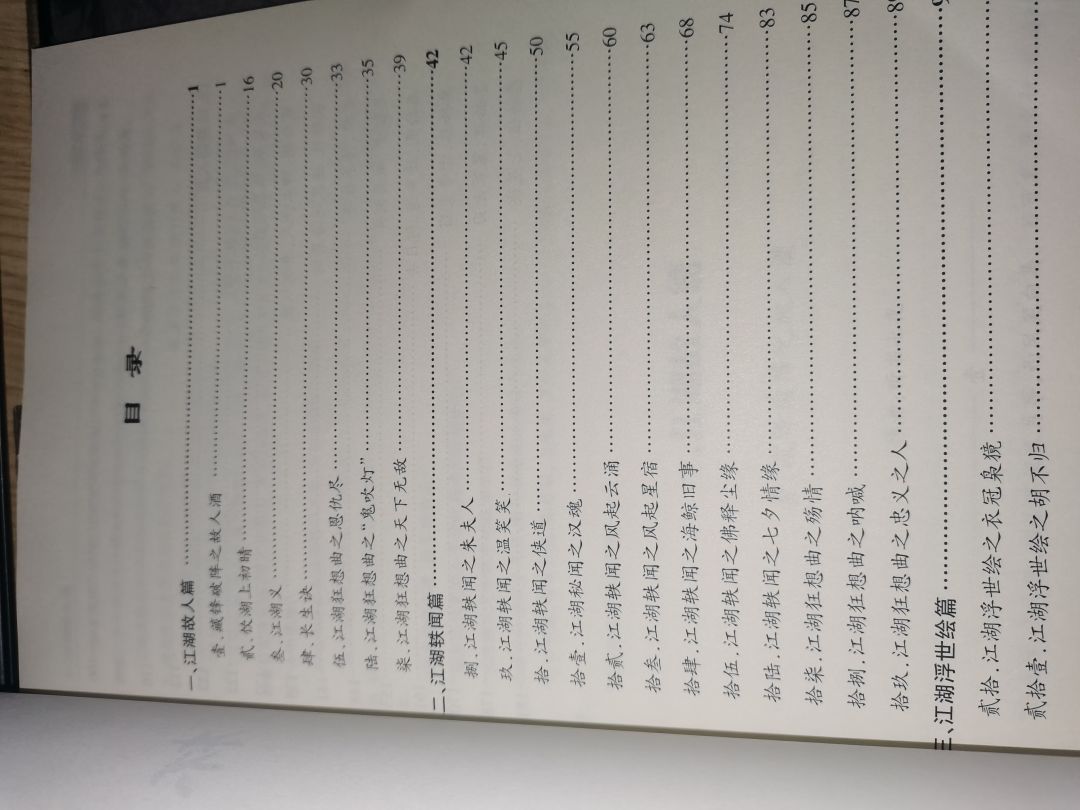 目 录
一、江湖故人篇……1
壹.藏锋破阵之故人酒……1
贰.饮湖上初晴……16
叁.江湖义……20
肆.长生诀……30
伍.江湖狂想曲之恩仇尽……33
陆.江湖狂想曲之“鬼吹灯”……35
柒.江湖狂想曲之天下无敌……39
二、江湖轶闻篇……42
捌.江湖轶闻之朱夫人……42
玖.江湖轶闻之温笑笑……45
拾.江湖轶闻之侠道……50
拾壹.江湖秘闻之汉魂……55
拾贰.江湖轶闻之风起云涌……60
拾叁.江湖轶闻之风起星宿……63
拾肆.江湖轶闻之海鲸旧事……68
拾伍.江湖轶闻之佛释尘缘……74
拾陆.江湖轶闻之七夕情缘……83
拾柒.江湖狂想曲之殇情……85
拾捌.江湖狂想曲之呐喊……87
拾玖.江湖狂想曲之忠义之人……
三、江湖浮世绘篇……
贰拾.江湖浮世绘之衣冠枭獍……
贰拾壹.江湖浮世绘之胡不归……